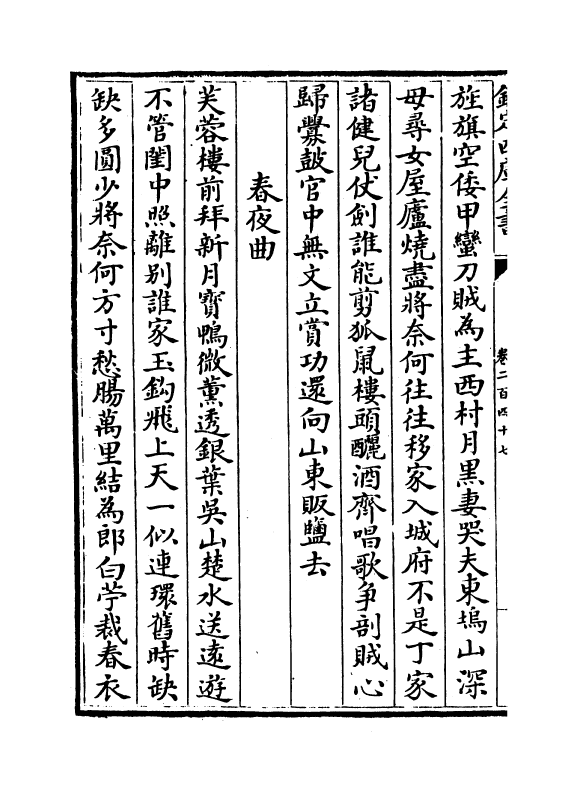 欽定四庫全書
卷二百四十七
旌旗空倭甲蠻刀賊為主西村月黒妻哭夫東塢山深
母尋女屋廬燒盡將奈何往往移家入城府不是丁家
諸健兒仗劍誰能剪狐鼠樓頭釃酒齊唱歌爭剖賊心
歸釁鼓官中無文立賞功還向山東販鹽去
春夜曲
芙蓉樓前拜新月寶鴨微薰透銀葉吳山楚水送逺遊
不管閨中照離别誰家玉鈎飛上天一似連環舊時缺
缺多圓少將奈何方寸愁腸萬里結為郎白苧裁春衣